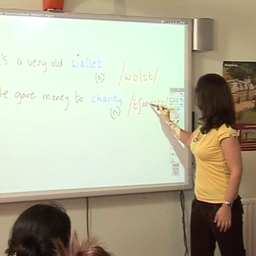 's a very old wallet
(n) /wɒlɪt/
e gave money to charity
(n) /tʃær